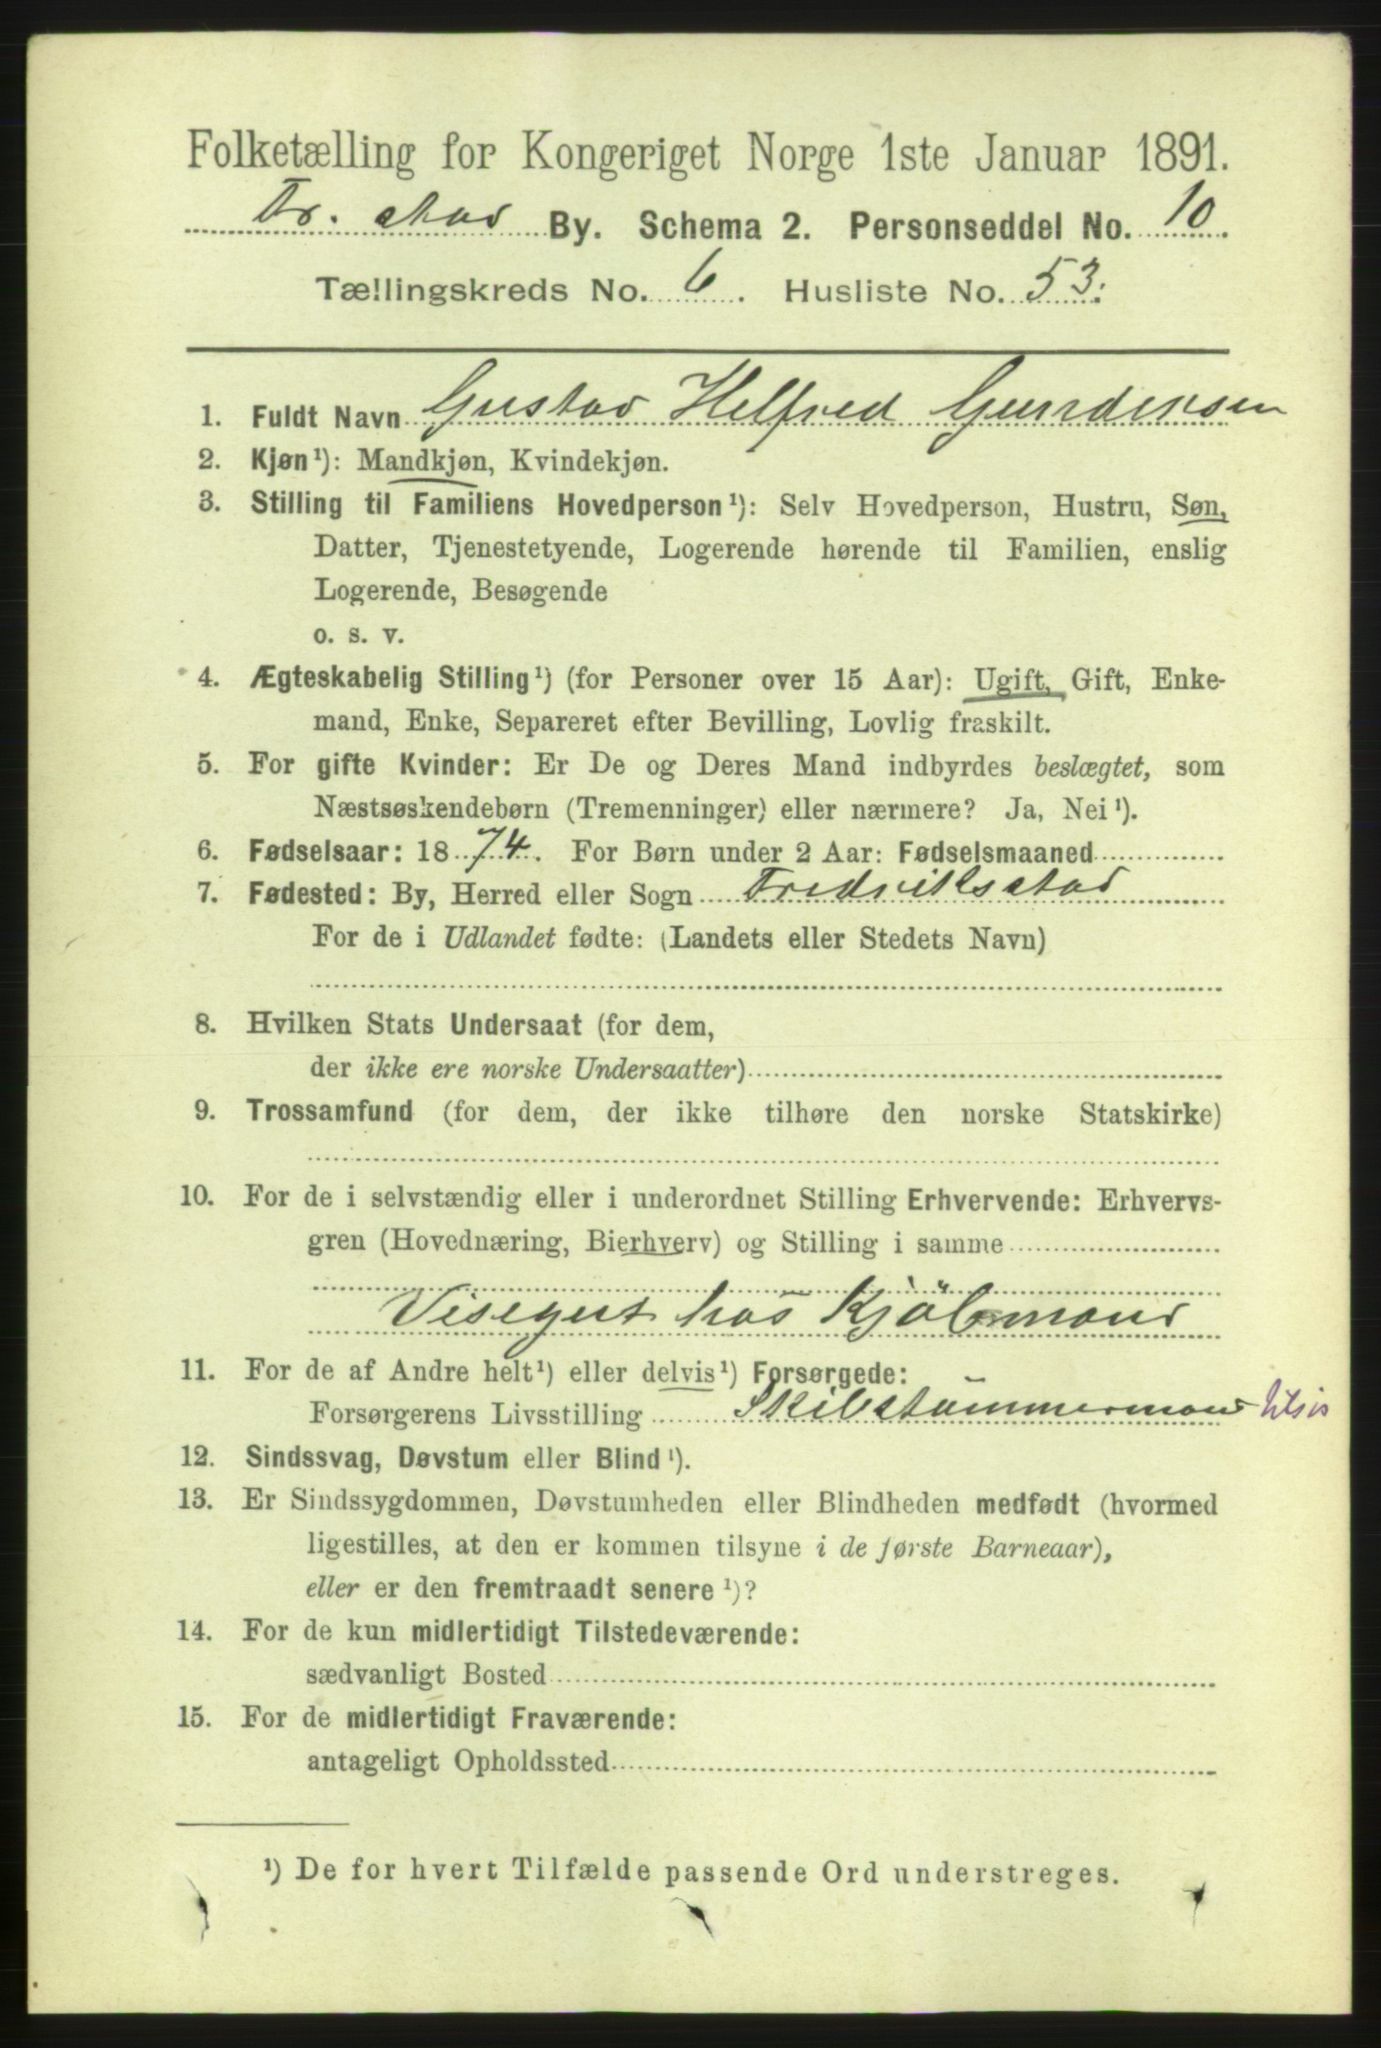 Folketælling for Kongeriget Norge 1ste Januar 1891.
Fr. stad By. Schema 2. Personseddel No. 10.
Tællingskreds No. 6. Husliste No. 53.
1. Fuldt Navn Gustav Helfred Gundersen
2. Kjøn¹): Mandkjøn, Kvindekjøn.
3. Stilling til Familiens Hovedperson¹): Selv Hovedperson, Hustru, Søn,
Datter, Tjenestetyende, Logerende hørende til Familien, enslig
Logerende, Besøgende
o. s. v.
4. Ægteskabelig Stilling¹) (for Personer over 15 Aar): Ugift, Gift, Enke-
mand, Enke, Separeret efter Bevilling, Lovlig fraskilt.
5. For gifte Kvinder: Er De og Deres Mand indbyrdes beslægtet, som
Næstsøskendebørn (Tremenninger) eller nærmere? Ja, Nei¹).
6. Fødselsaar: 1874. For Børn under 2 Aar: Fødselsmaaned
7. Fødested: By, Herred eller Sogn Fredrikstad
For de i Udlandet fødte: (Landets eller Stedets Navn)
8. Hvilken Stats Undersaat (for dem,
der ikke ere norske Undersaatter)
9. Trossamfund (for dem, der ikke tilhøre den norske Statskirke)
10. For de i selvstændig eller i underordnet Stilling Erhvervende: Erhvervs-
gren (Hovednæring, Bierhverv) og Stilling i samme
Visegut hos Kjøbmand
11. For de af Andre helt¹) eller delvis¹) Forsørgede:
Forsørgerens Livsstilling Skibstømmermand
12. Sindssvag, Døvstum eller Blind¹).
13. Er Sindssygdommen, Døvstumheden eller Blindheden medfødt (hvormed
ligestilles, at den er kommen tilsyne i de første Barneaar),
eller er den fremtraadt senere¹)?
14. For de kun midlertidigt Tilstedeværende:
sædvanligt Bosted
15. For de midlertidigt Fraværende:
antageligt Opholdssted
¹) De for hvert Tilfælde passende Ord understreges.